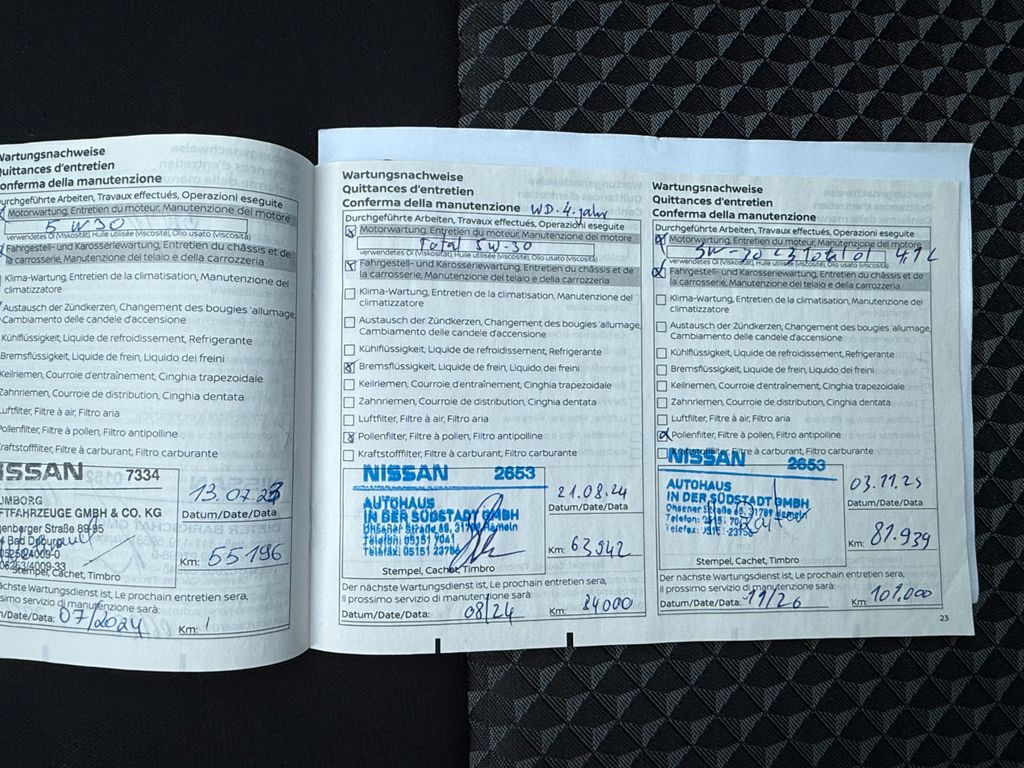 Wartungsnachweise
Quittances d'entretien
Conferma della manutenzione
Durchgeführte Arbeiten, Travaux effectués, Operazioni eseguite
Motorwartung, Entretien du moteur, Manutenzione del motore
5 W30
verwendetes Öl (Viskosität), Huile utilisée (viscosité), Olio usato (viscosità)
Fahrgestell- und Karosseriewartung, Entretien du châssis et de
la carrosserie, Manutenzione del telaio e della carrozzeria
Klima-Wartung, Entretien de la climatisation, Manutenzione del
climatizzatore
Austausch der Zündkerzen, Changement des bougies 'allumage,
Cambiamento delle candele d'accensione
Kühlflüssigkeit, Liquide de refroidissement, Refrigerante
Bremsflüssigkeit, Liquide de frein, Liquido dei freini
Keilriemen, Courroie d'entraînement, Cinghia trapezoidale
Zahnriemen, Courroie de distribution, Cinghia dentata
Luftfilter, Filtre à air, Filtro aria
Pollenfilter, Filtre à pollen, Filtro antipolline
Kraftstofffilter, Filtre à carburant, Filtro carburante
NISSAN 7334
GMBH & CO. KG
Straße 89-95
Bad
13.07.23
Datum/Date/Data:
Km: 55196
Stempel, Cachet, Timbro
nächste Wartungsdienst ist, Le prochain entretien sera,
prossimo servizio di manutenzione sarà:
Datum/Date/Data: 07/2024 Km: /
Wartungsnachweise
Quittances d'entretien
Conferma della manutenzione WD.4.Jahr
Durchgeführte Arbeiten, Travaux effectués, Operazioni eseguite
Motorwartung, Entretien du moteur, Manutenzione del motore
Total 5W-30
verwendetes Öl (Viskosität), Huile utilisée (viscosité), Olio usato (viscosità)
Fahrgestell- und Karosseriewartung, Entretien du châssis et de
la carrosserie, Manutenzione del telaio e della carrozzeria
Klima-Wartung, Entretien de la climatisation, Manutenzione del
climatizzatore
Austausch der Zündkerzen, Changement des bougies 'allumage,
Cambiamento delle candele d'accensione
Kühlflüssigkeit, Liquide de refroidissement, Refrigerante
Bremsflüssigkeit, Liquide de frein, Liquido dei freini
Keilriemen, Courroie d'entraînement, Cinghia trapezoidale
Zahnriemen, Courroie de distribution, Cinghia dentata
Luftfilter, Filtre à air, Filtro aria
Pollenfilter, Filtre à pollen, Filtro antipolline
Kraftstofffilter, Filtre à carburant, Filtro carburante
NISSAN 2653
AUTOHAUS
IN DER SÜDSTADT GMBH
Ohsener Straße 65, 31789 Hameln
Telefon: 05151 7041
Telefax: 05151 23766
21.08.24
Datum/Date/Data:
Km: 63942
Stempel, Cachet, Timbro
Der nächste Wartungsdienst ist, Le prochain entretien sera,
Il prossimo servizio di manutenzione sarà:
Datum/Date/Data: 08/24 Km: 84000
Wartungsnachweise
Quittances d'entretien
Conferma della manutenzione
Durchgeführte Arbeiten, Travaux effectués, Operazioni eseguite
Motorwartung, Entretien du moteur, Manutenzione del motore
5W-30 C3 Total 4,1L
verwendetes Öl (Viskosität), Huile utilisée (viscosité), Olio usato (viscosità)
Fahrgestell- und Karosseriewartung, Entretien du châssis et de
la carrosserie, Manutenzione del telaio e della carrozzeria
Klima-Wartung, Entretien de la climatisation, Manutenzione del
climatizzatore
Austausch der Zündkerzen, Changement des bougies 'allumage,
Cambiamento delle candele d'accensione
Kühlflüssigkeit, Liquide de refroidissement, Refrigerante
Bremsflüssigkeit, Liquide de frein, Liquido dei freini
Keilriemen, Courroie d'entraînement, Cinghia trapezoidale
Zahnriemen, Courroie de distribution, Cinghia dentata
Luftfilter, Filtre à air, Filtro aria
Pollenfilter, Filtre à pollen, Filtro antipolline
Kraftstofffilter, Filtre à carburant, Filtro carburante
NISSAN 2653
AUTOHAUS
IN DER SÜDSTADT GMBH
Ohsener Straße 65, 31789 Hameln
Telefon:
Telefax:
03.11.25
Datum/Date/Data
Km: 81.939
Stempel, Cachet, Timbro
Der nächste Wartungsdienst ist, Le prochain entretien sera,
Il prossimo servizio di manutenzione sarà:
Datum/Date/Data: 11/26 Km: 101.000
23